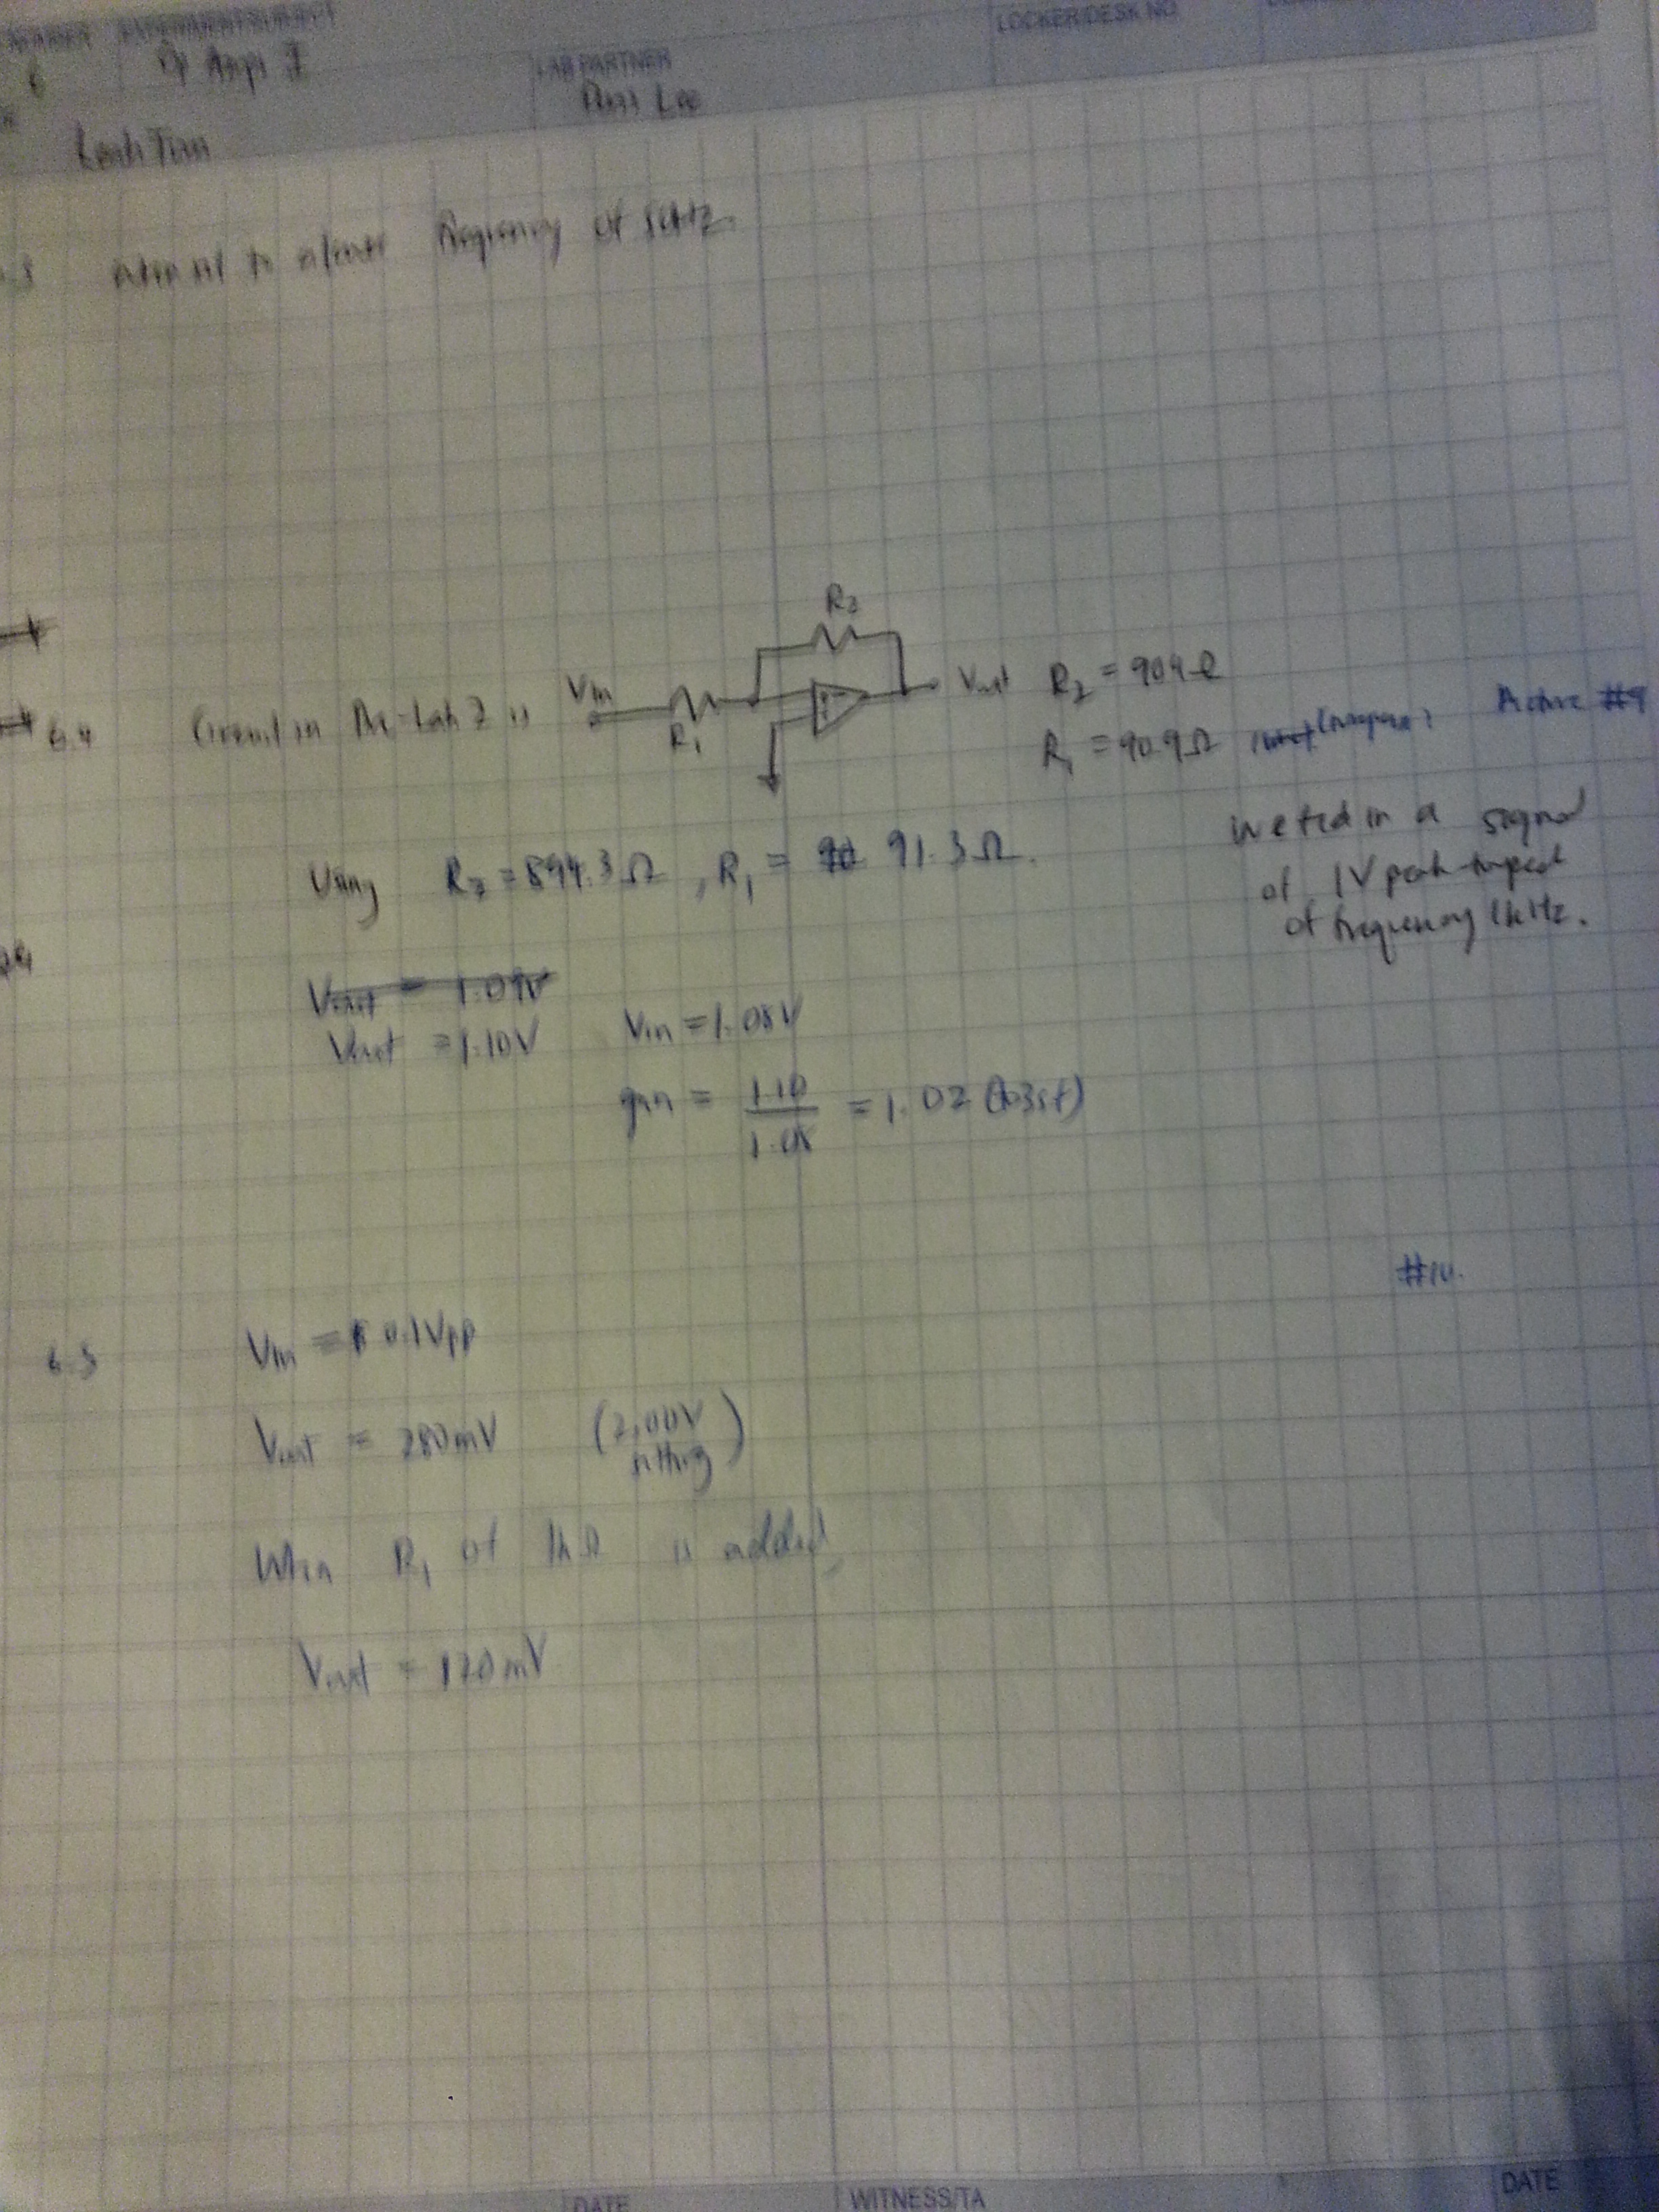 EXPERIMENT/SUBJECT
LOCKER/DESK NO.
Op Amps I
LAB PARTNER
Lee
frequency of
R2
6.4 Circuit in Pre-Lab 2 is Vin R1 Vout R2 = 909Ω
R1 = 90.9Ω
#9
Using R2 = 894.3Ω, R1 = 91.3Ω.
We fed in a signal
of 1V peak-to-peak
of frequency 1kHz.
Vout = 1.09V
Vout = 1.10V Vin = 1.08V
gain = 1.10 / 1.08 = 1.02 (to3sf)
#10.
6.5 Vin = 0.1Vpp
Vout = 280mV (2.00V
setting)
When R1 of 1kΩ is added,
Vout = 120mV
DATE
WITNESS/TA
DATE